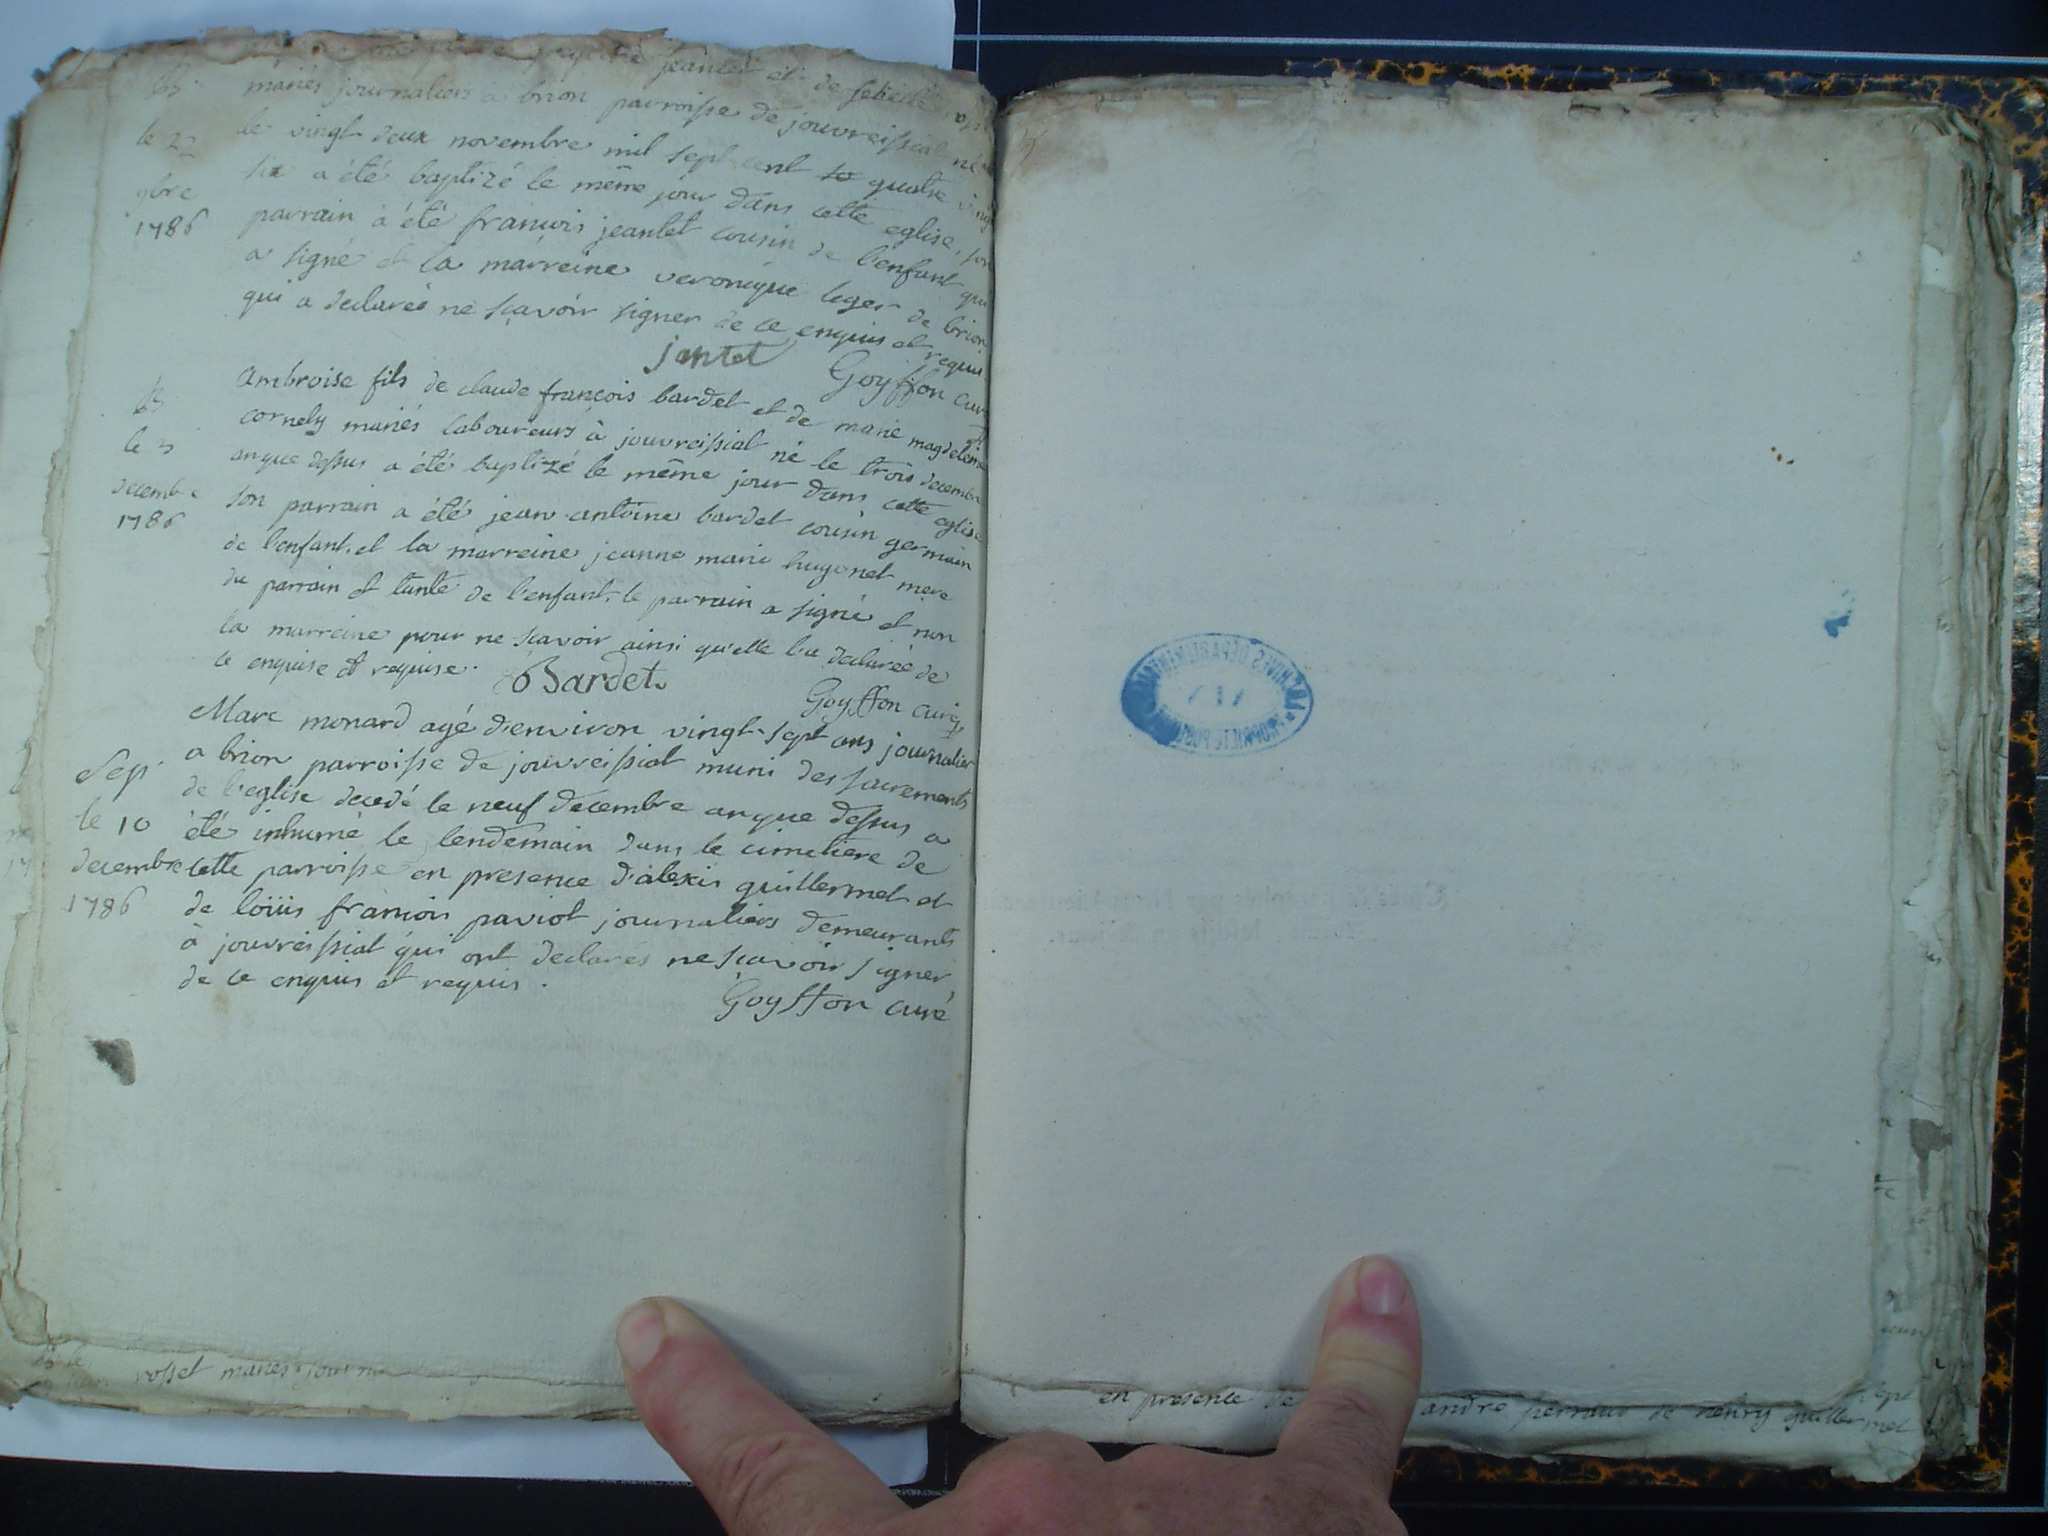 jeantet et de
bs
mariés journaliers a brion parroisse de jouvreissiat né
le 22
le vingt deux novembre mil sept cent quatre vingt
9bre
six a été baptizé le même jour dans cette eglise, son
1786
parrain à été francois jeantet cousin de l'enfant qui
a signé et la marreine veronique leger de brion
qui a declarée ne sçavoir signer de ce enquis et requis
jantet
Goyffon curé
bs
Ambroise fils de claude françois bardet et de marie magdeleine
cornely mariés laboureurs à jouvreissiat né le trois decembre
le 3
an que dessus a été baptizé le même jour dans cette eglise
decembre
son parrain a été jean antoine bardet cousin germain
1786
de l'enfant, et la marreine jeanne marie hugonet mere
du parrain et tante de l'enfant, le parrain a signé et non
la marreine pour ne sçavoir ainsi qu'elle l'a declarée de
ce enquise et requise.
Bardet
Goyffon curé
Marc monard agé d'environ vingt-sept ans journalier
Sep.
a brion parroisse de jouvreissiat muni des sacrements
de l'eglise decedé le neuf decembre an que dessus a
le 10
été inhumé le lendemain dans le cimetiere de
decembre
cette parroisse en presence d'alexis guillermet et
1786
de loüis francois paviot journaliers demeurants
à jouvreissiat qui ont declarés ne sçavoir signer
de ce enquis et requis.
Goyffon curé
rosset mariés journa
en presence de
andré perraud de henry guillermet